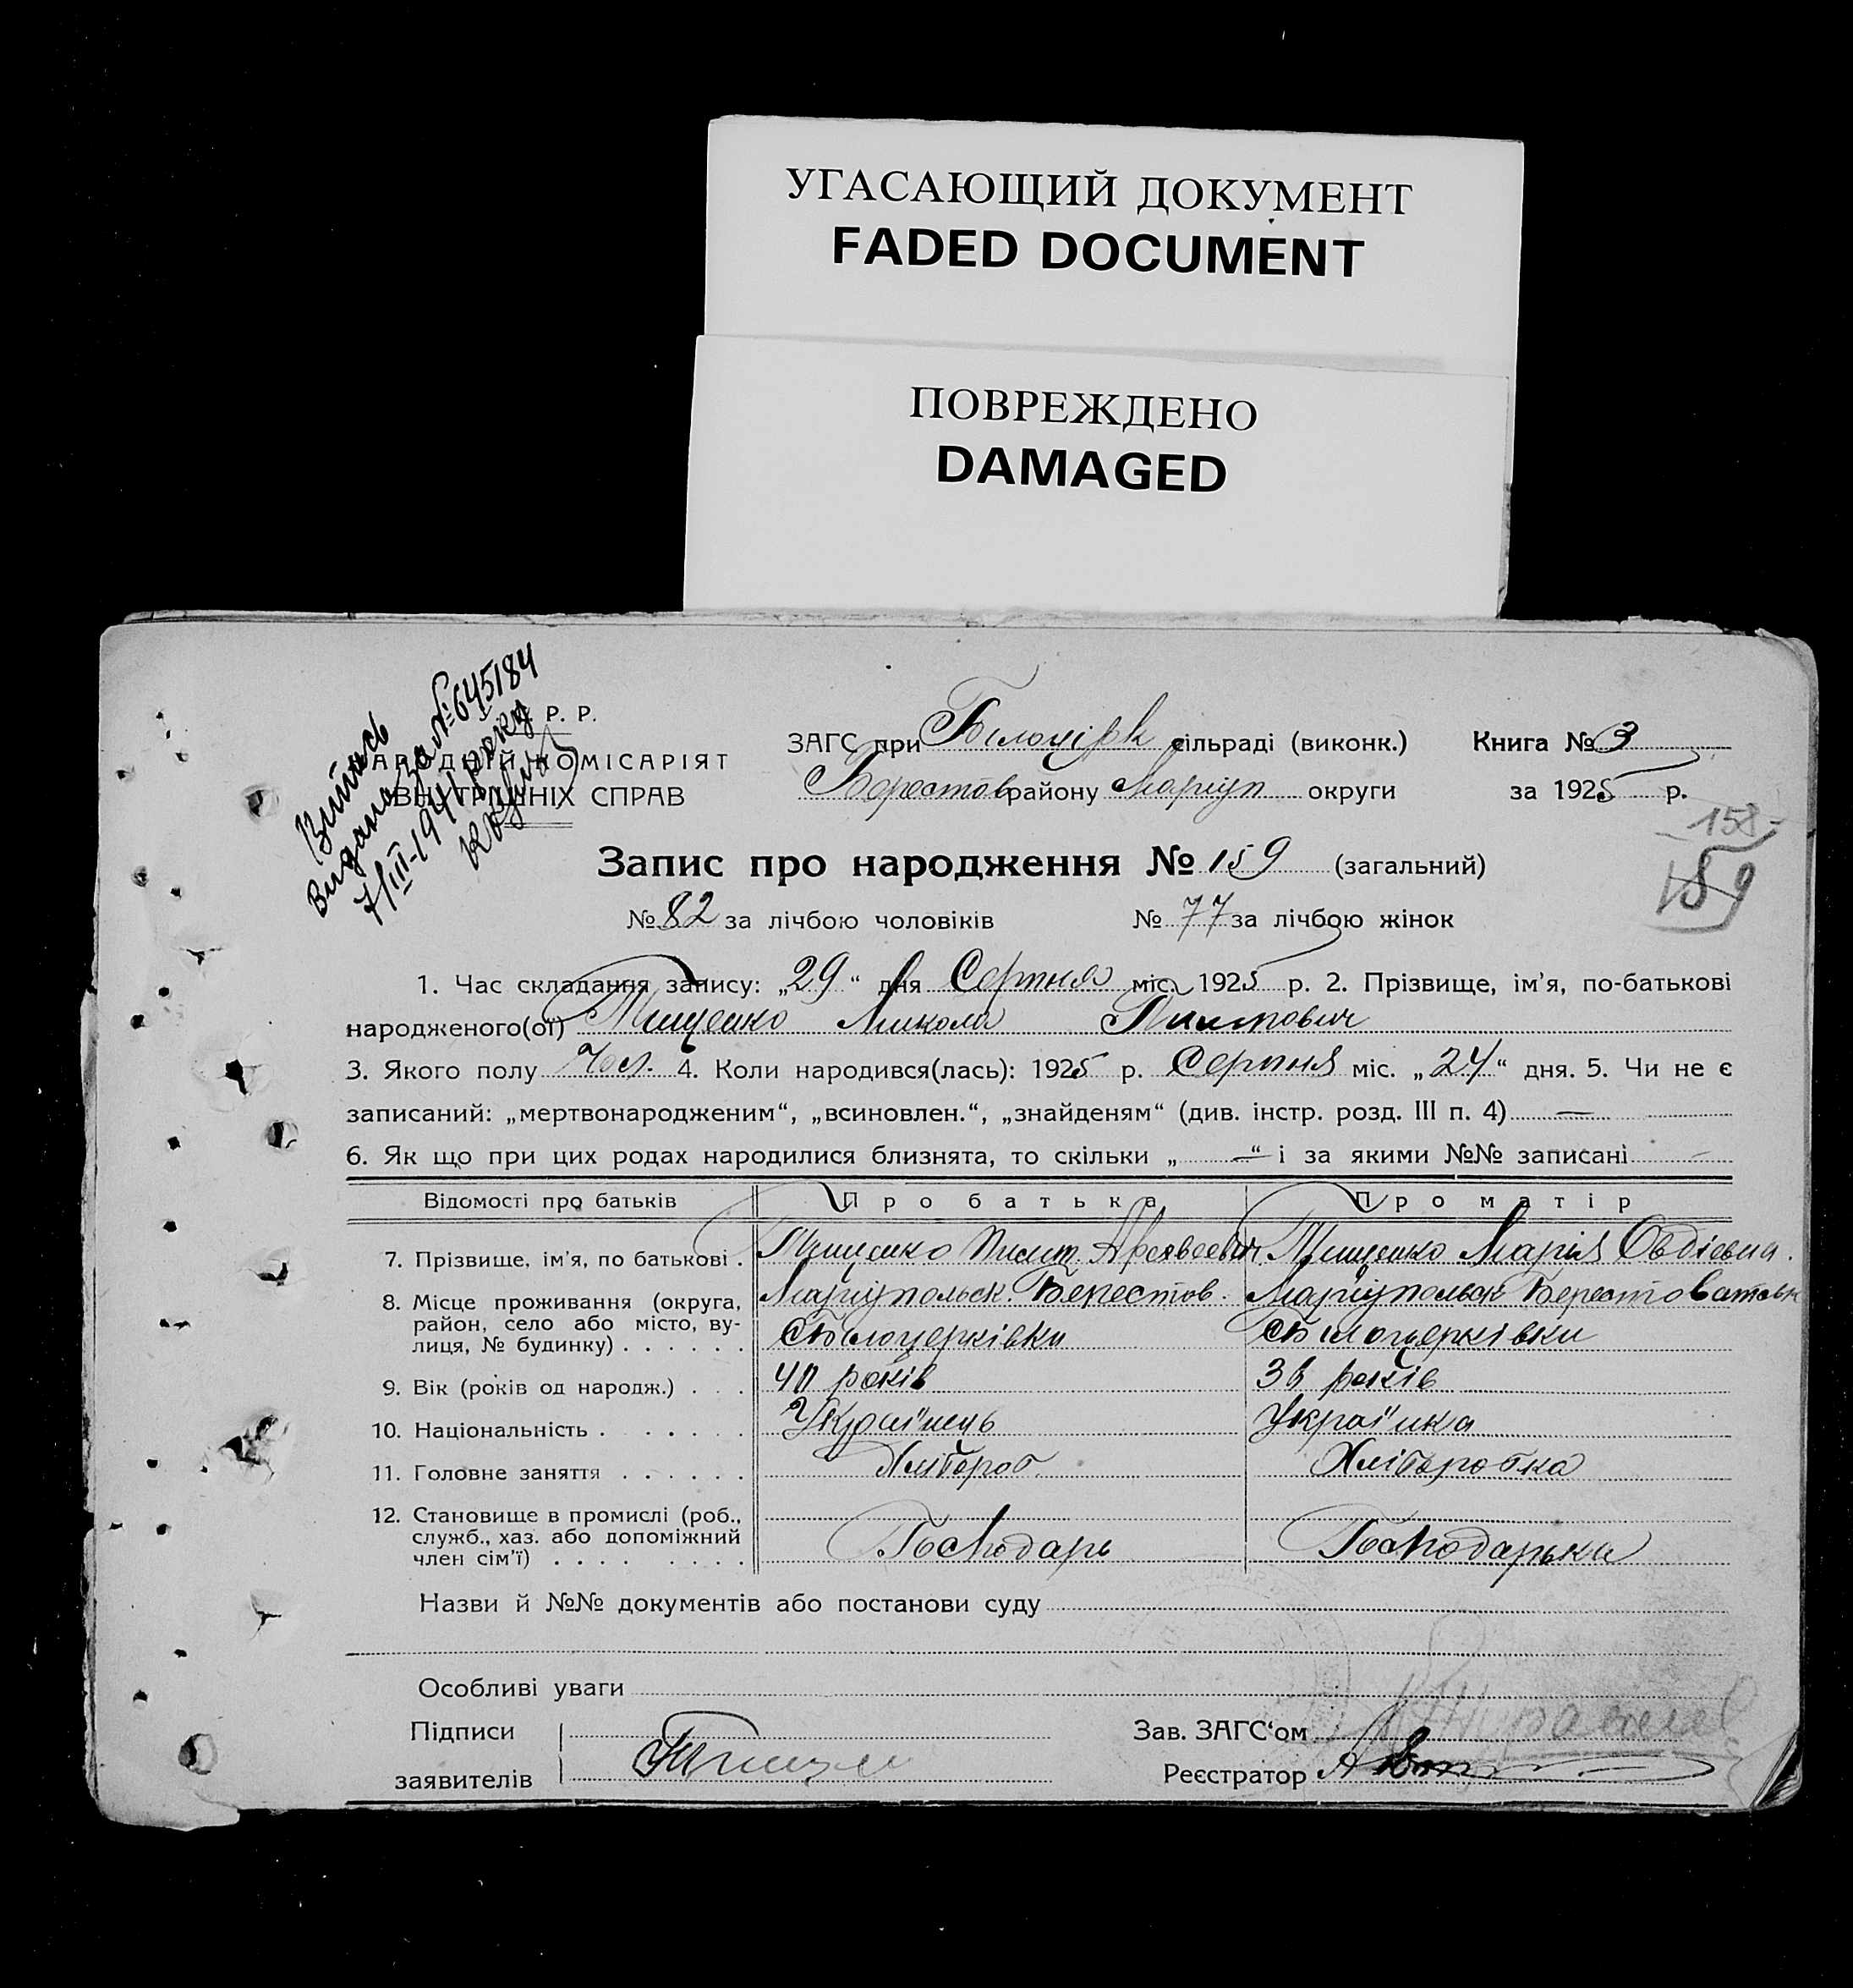 УГАСАЮЩИЙ ДОКУМЕНТ
FADED DOCUMENT
ПОВРЕЖДЕНО
DAMAGED
Витясь
видано за №645184
7/III-1941 року
Р. Р.
НАРОДНІЙ КОМІСАРІЯТ
ВНУТРІШНІХ СПРАВ
ЗАГС при Білоцірк сільраді (виконк.) Книга № 3
Берестов району Маріуп округи за 1925 р.
158
159
Запис про народження № 159 (загальний)
№ 82 за лічбою чоловіків № 77 за лічбою жінок
1. Час складання запису: „29“ дня Серпня міс. 1925 р. 2. Прізвище, ім’я, по-батькові
народженого(ої) Тищенко Микола Пилипович
3. Якого полу Чол. 4. Коли народився(лась): 1925 р. Серпня міс. „24“ дня. 5. Чи не є
записаний: „мертвонародженим“, „всиновлен.“, „знайденям“ (див. інстр. розд. III п. 4) —
6. Як що при цих родах народилися близнята, то скільки „—“ і за якими №№ записані —
Відомості про батьків Про батька Про матір
7. Прізвище, ім’я, по батькові . Тищенко Пилип. Тищенко Марія Овдіевна.
8. Місце проживання (округа, Маріупольск. Берестов. Маріупольск Берестоватськ
район, село або місто, ву-
лиця, № будинку) . . . . . . с Білоцерківка с Білоцерківки
9. Вік (років од народж.) . . . 40 років років
10. Національність . . . . . . . Українець Українка
11. Головне заняття . . . . . . Хлібороб Хліборобка
12. Становище в промислі (роб.,
служб., хаз. або допоміжний
член сім’ї) . . . . . . . . . Господарь Господарька
Назви й №№ документів або постанови суду
Особливі уваги
Підписи Зав. ЗАГС‘ом
заявителів Реєстратор